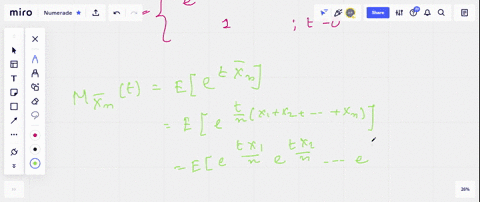 miro Numerade Share
= { e
1 ; t = 0
M_{X̄_n}(t) = E[e^{t X̄_n}]
= E[e^{t/n (x_1 + x_2 + ... + x_n)}]
= E[e^{t x_1/n} e^{t x_2/n} ... e
26%